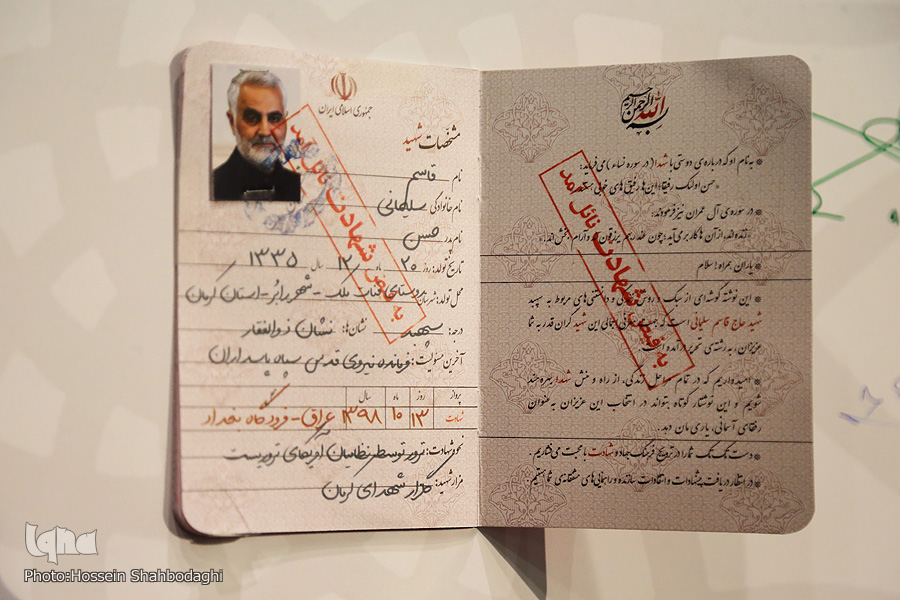 بسم الله الرحمن الرحیم
* به نام او که درباره‌ی دوستی با شهدا (در سوره نساء) می‌فرماید:
«حسن اولئک رفیقا» این‌ها رفیق‌های خوبی هستند
* در سوره‌ی آل عمران نیز فرموده‌اند:
* یاران همراه! سلام
* این نوشته گوشه‌ای از سبک و روش زندگی و دانستنی‌های مربوط به سپهبد
شهید حاج قاسم سلیمانی است که جهت معرفی اجمالی این شهید گران قدر به شما
عزیزان، به رشته‌ی تحریر درآمده است.
* امیدواریم که در تمام مراحل زندگی، از راه و منش شهدا بهره‌مند
شویم و این نوشتار کوتاه بتواند در انتخاب این عزیزان به‌عنوان
رفقای آسمانی، یاری‌مان دهد...
* دست تک تک شما را در ترویج فرهنگ جهاد و شهادت با محبت می‌فشاریم.
* در انتظار دریافت پیشنهادات و انتقادات سازنده و راهنمایی‌های مشفقانه‌ی شما هستیم.
به فیض شهادت نائل آمد
جمهوری اسلامی ایران
مشخصات شهید
نام قاسم
نام خانوادگی سلیمانی
نام پدر حسن
تاریخ تولد: روز ۲۰ ماه ۱۲ سال ۱۳۳۵
محل تولد: شهرستان روستای قنات ملک - شهر رابُر - استان کرمان
درجه: سپهبد نشان‌ها: نشان ذوالفقار
آخرین مسئولیت: فرمانده نیروی قدس سپاه پاسداران
پرواز روز ماه سال
شهادت ۱۳ ۱۰ ۱۳۹۸ عراق - فرودگاه بغداد
نحوه شهادت: ترور توسط نظامیان آمریکای تروریست
مزار شهید: گلزار شهدای کرمان
به فیض شهادت نائل آمد
iqna
Photo:Hossein Shahbodaghi